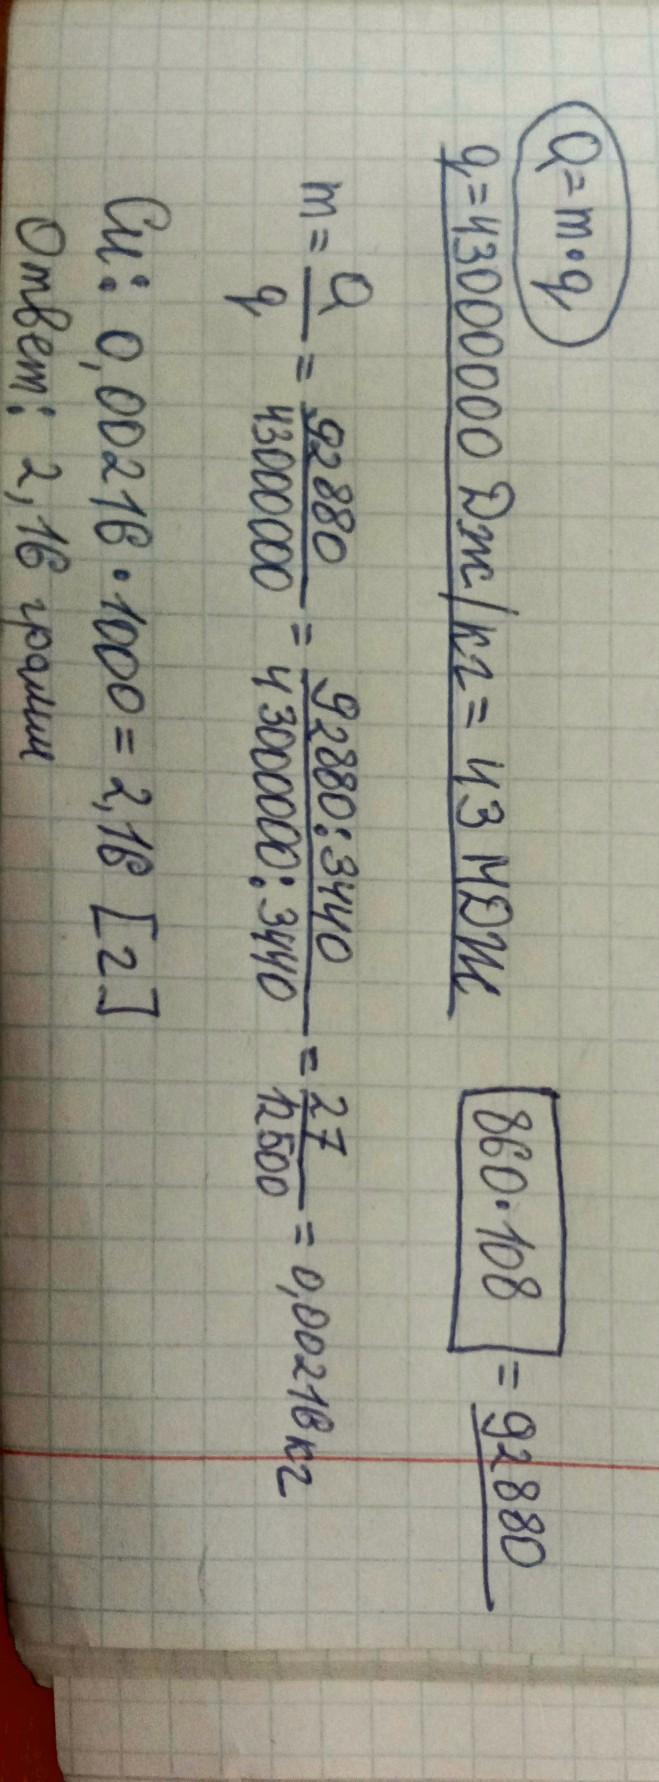 Q=m·q
q=43000000 Дж/кг = 43 МДж
860·108 = 92880
m = Q/q = 92880/43000000 = 92880:3440/43000000:3440 = 27/12500 = 0,00216 кг
Си: 0,00216·1000 = 2,16 [г]
Ответ: 2,16 грамм